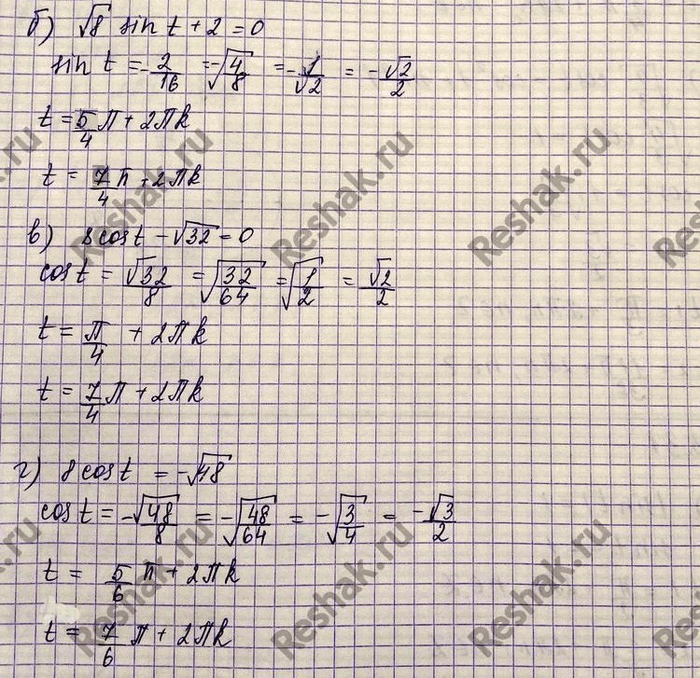 б) √8 sin t + 2 = 0
sin t = -2/16 = -√(4/8) = -1/√2 = -√2/2
t = 5/4 π + 2πk
t = 7/4 π + 2πk
в) 8 cos t - √32 = 0
cos t = √32/8 = √(32/64) = √(1/2) = √2/2
t = π/4 + 2πk
t = 7/4 π + 2πk
г) 8 cos t = -√48
cos t = -√48/8 = -√(48/64) = -√(3/4) = -√3/2
t = 5/6 π + 2πk
t = 7/6 π + 2πk
Reshak.ru
Reshak.ru
Reshak.ru
Reshak.ru
Reshak.ru